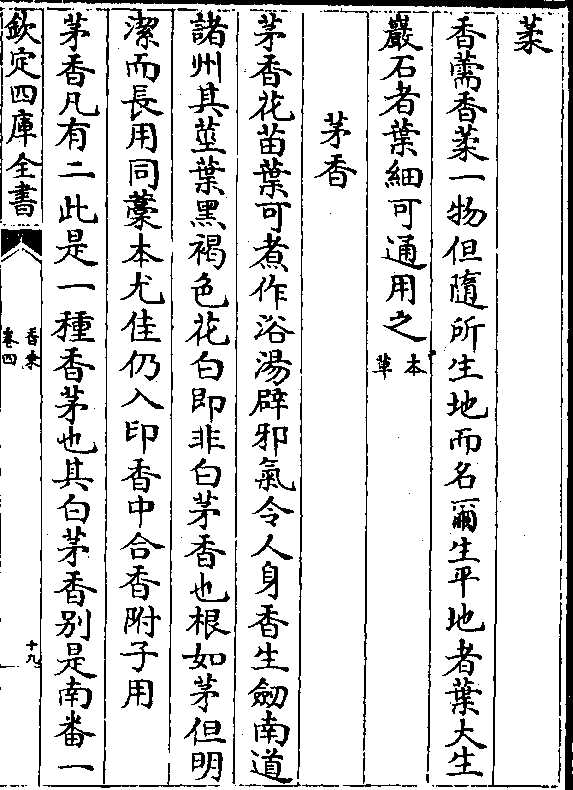 葇
香薷香葇一物但隨所生地而名爾生平地者葉大生
巖石者葉細可通用之本草
茅香
茅香花苗葉可煮作浴湯辟邪氣令人身香生劒南道
諸州其莖葉黑褐色花白即非白茅香也根如茅但明
潔而長用同藁本尤佳仍入印香中合香附子用
茅香凡有二此是一種香茅也其白茅香别是南番一
欽定四庫全書
香乘
卷四
十九